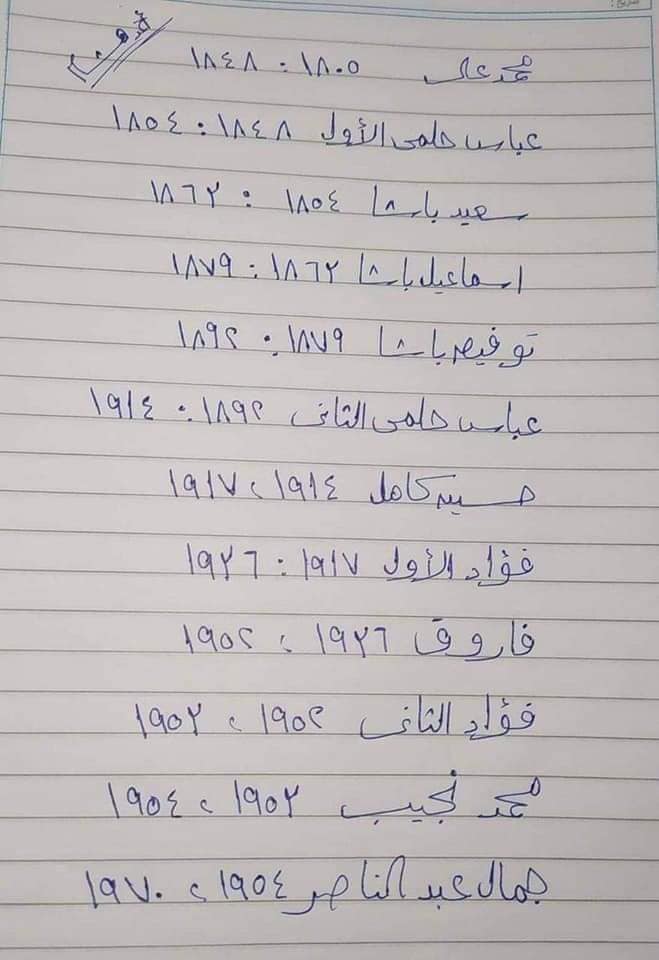 محمد على ١٨٠٥ : ١٨٤٨
عباس حلمى الأول ١٨٤٨ : ١٨٥٤
سعيد باشا ١٨٥٤ : ١٨٦٣
اسماعيل باشا ١٨٦٣ : ١٨٧٩
توفيق باشا ١٨٧٩ : ١٨٩٢
عباس حلمى الثانى ١٨٩٢ : ١٩١٤
حسين كامل ١٩١٤ ، ١٩١٧
فؤاد الأول ١٩١٧ : ١٩٣٦
فاروق ١٩٣٦ ، ١٩٥٢
فؤاد الثانى ١٩٥٢ ، ١٩٥٣
محمد نجيب ١٩٥٣ ، ١٩٥٤
جمال عبد الناصر ١٩٥٤ ، ١٩٧٠